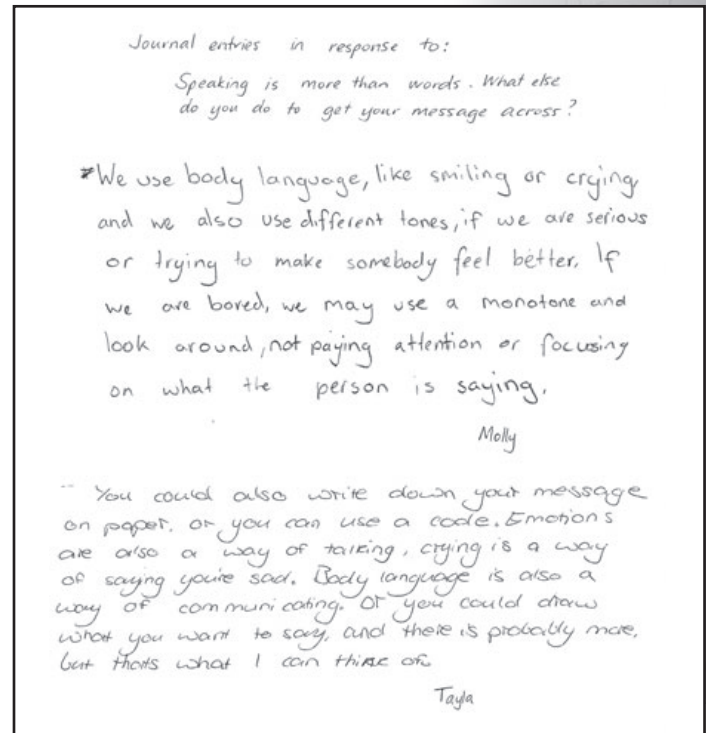 Journal entries in response to:
Speaking is more than words. What else
do you do to get your message across?
We use body language, like smiling or crying,
and we also use different tones, if we are serious
or trying to make somebody feel better. If
we are bored, we may use a monotone and
look around, not paying attention or focusing
on what the person is saying.
Molly
You could also write down your message
on paper. or you can use a code. Emotions
are also a way of talking, crying is a way
of saying you're sad. Body language is also a
way of communicating. Or you could draw
what you want to say, and there is probably more,
but thats what I can think of.
Tayla